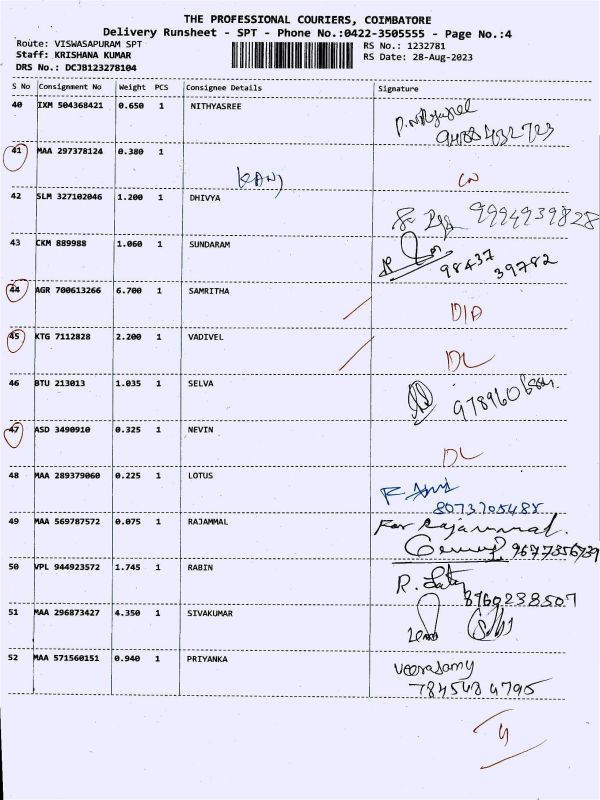 THE PROFESSIONAL COURIERS, COIMBATORE
Delivery Runsheet - SPT - Phone No.:0422-3505555 - Page No.:4
Route: VISWASAPURAM SPT RS No.: 1232781
Staff: KRISHANA KUMAR RS Date: 28-Aug-2023
DRS No.: DCJB123278104
S No Consignment No Weight PCS Consignee Details Signature
40 IXM 504368421 0.650 1 NITHYASREE
41 MAA 297378124 0.380 1
42 SLM 327102046 1.200 1 DHIVYA 9994939828
43 CKM 889988 1.060 1 SUNDARAM
98437
39782
44 AGR 700613266 6.700 1 SAMRITHA
45 KTG 7112828 2.200 1 VADIVEL
DL
46 BTU 213013 1.035 1 SELVA
47 ASD 3490910 0.325 1 NEVIN
DL
48 MAA 289379060 0.225 1 LOTUS
8073705488
49 MAA 569787572 0.075 1 RAJAMMAL For Rajammal.
9677356739
50 VPL 944923572 1.745 1 RABIN
8760238507
51 MAA 296873427 4.350 1 SIVAKUMAR
52 MAA 571560151 0.940 1 PRIYANKA Veerasamy
7845484795
4